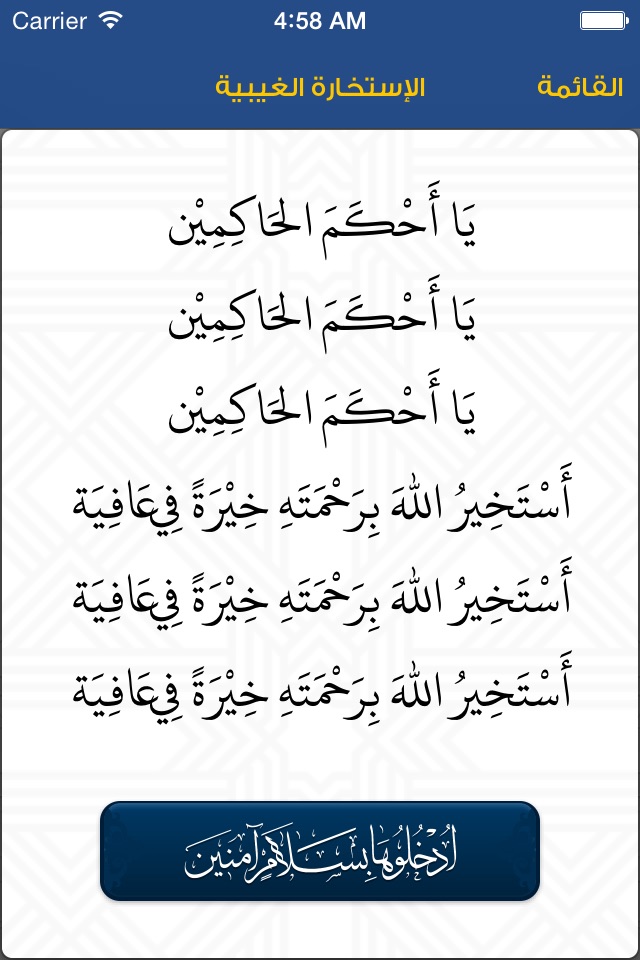 Carrier 4:58 AM
القائمة الإستخارة الغيبية
يَا أَحْكَمَ الحَاكِمِيْن
يَا أَحْكَمَ الحَاكِمِيْن
يَا أَحْكَمَ الحَاكِمِيْن
أَسْتَخِيرُ اللهَ بِرَحْمَتَهِ خِيْرَةً فِي عَافِيَة
أَسْتَخِيرُ اللهَ بِرَحْمَتَهِ خِيْرَةً فِي عَافِيَة
أَسْتَخِيرُ اللهَ بِرَحْمَتَهِ خِيْرَةً فِي عَافِيَة
اُدْخُلُوهَا بِسَلَامٍ آمِنِين